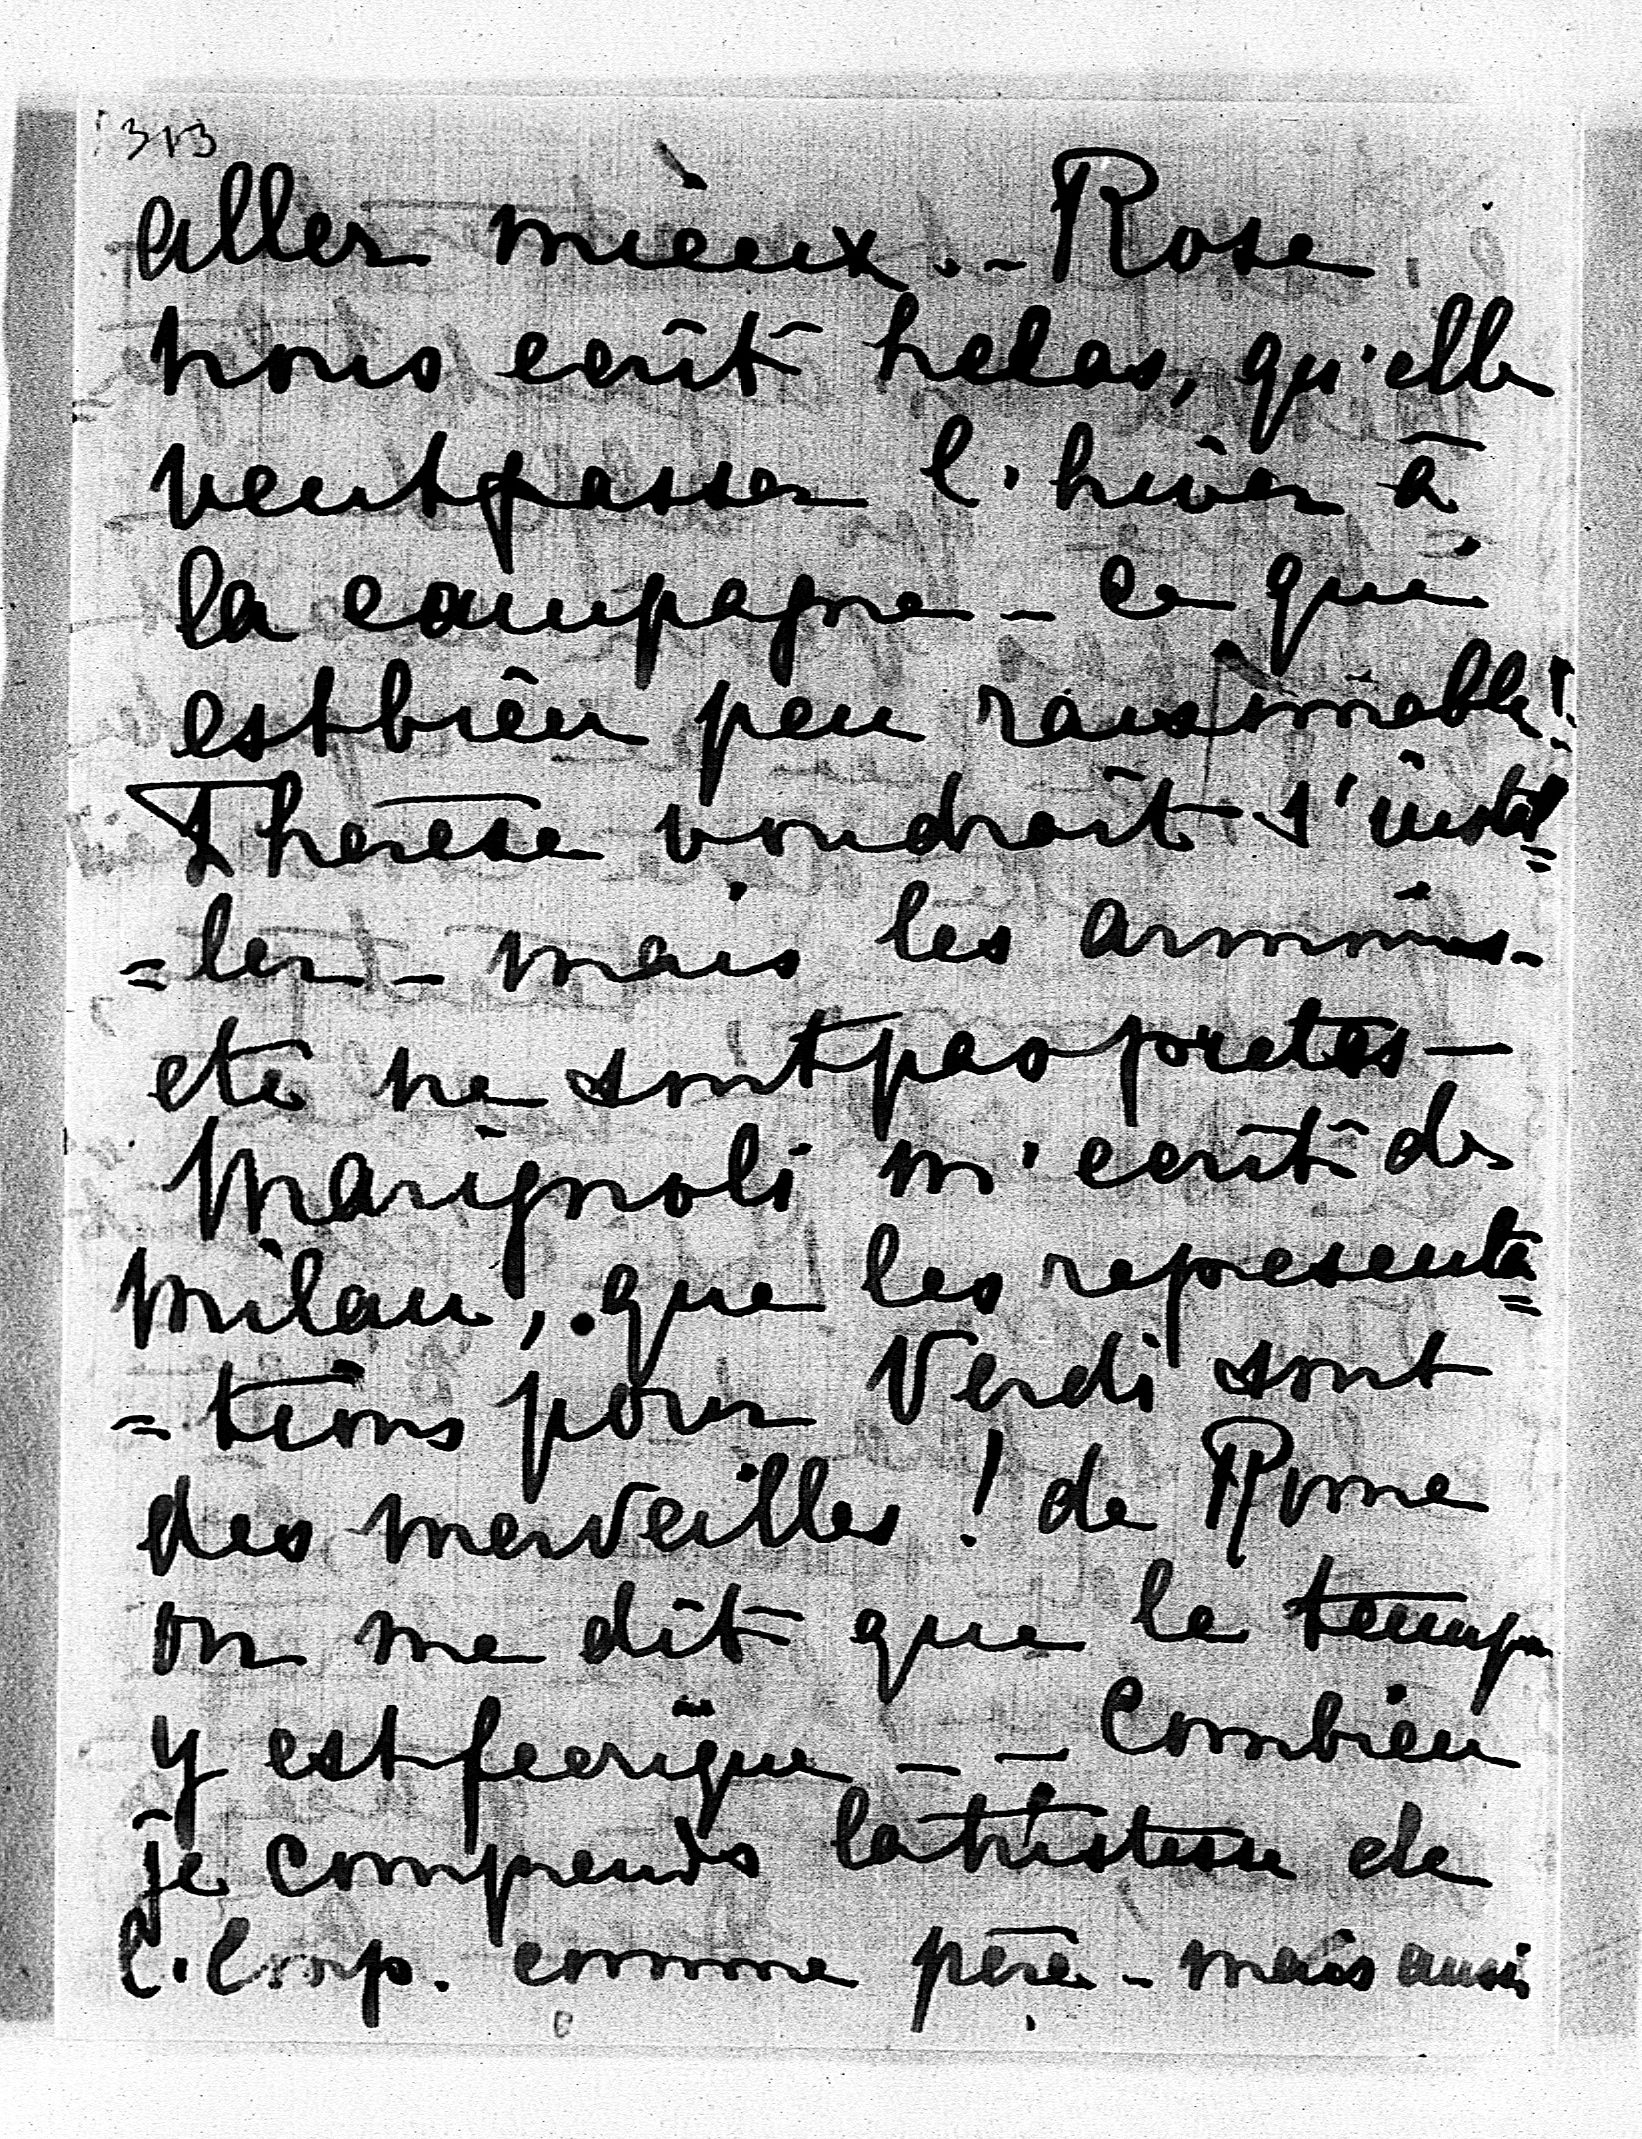 313
aller mieux. - Rose
nous ecrit helas, qu'elle
veut passer l'hiver à
la campagne - ce qui
est bien peu raisonnable!
Therese voudrait s'instal=
=ler - mais les armoires
etc ne sont pas pretes -
Marignoli m'ecrit de
Milan, que les representa=
=tions pour Verdi sont
des merveilles ! de Rome
on me dit que le temps
y est feerique - - Combien
je comprends la tristesse de
l'Emp. comme père - mais aussi